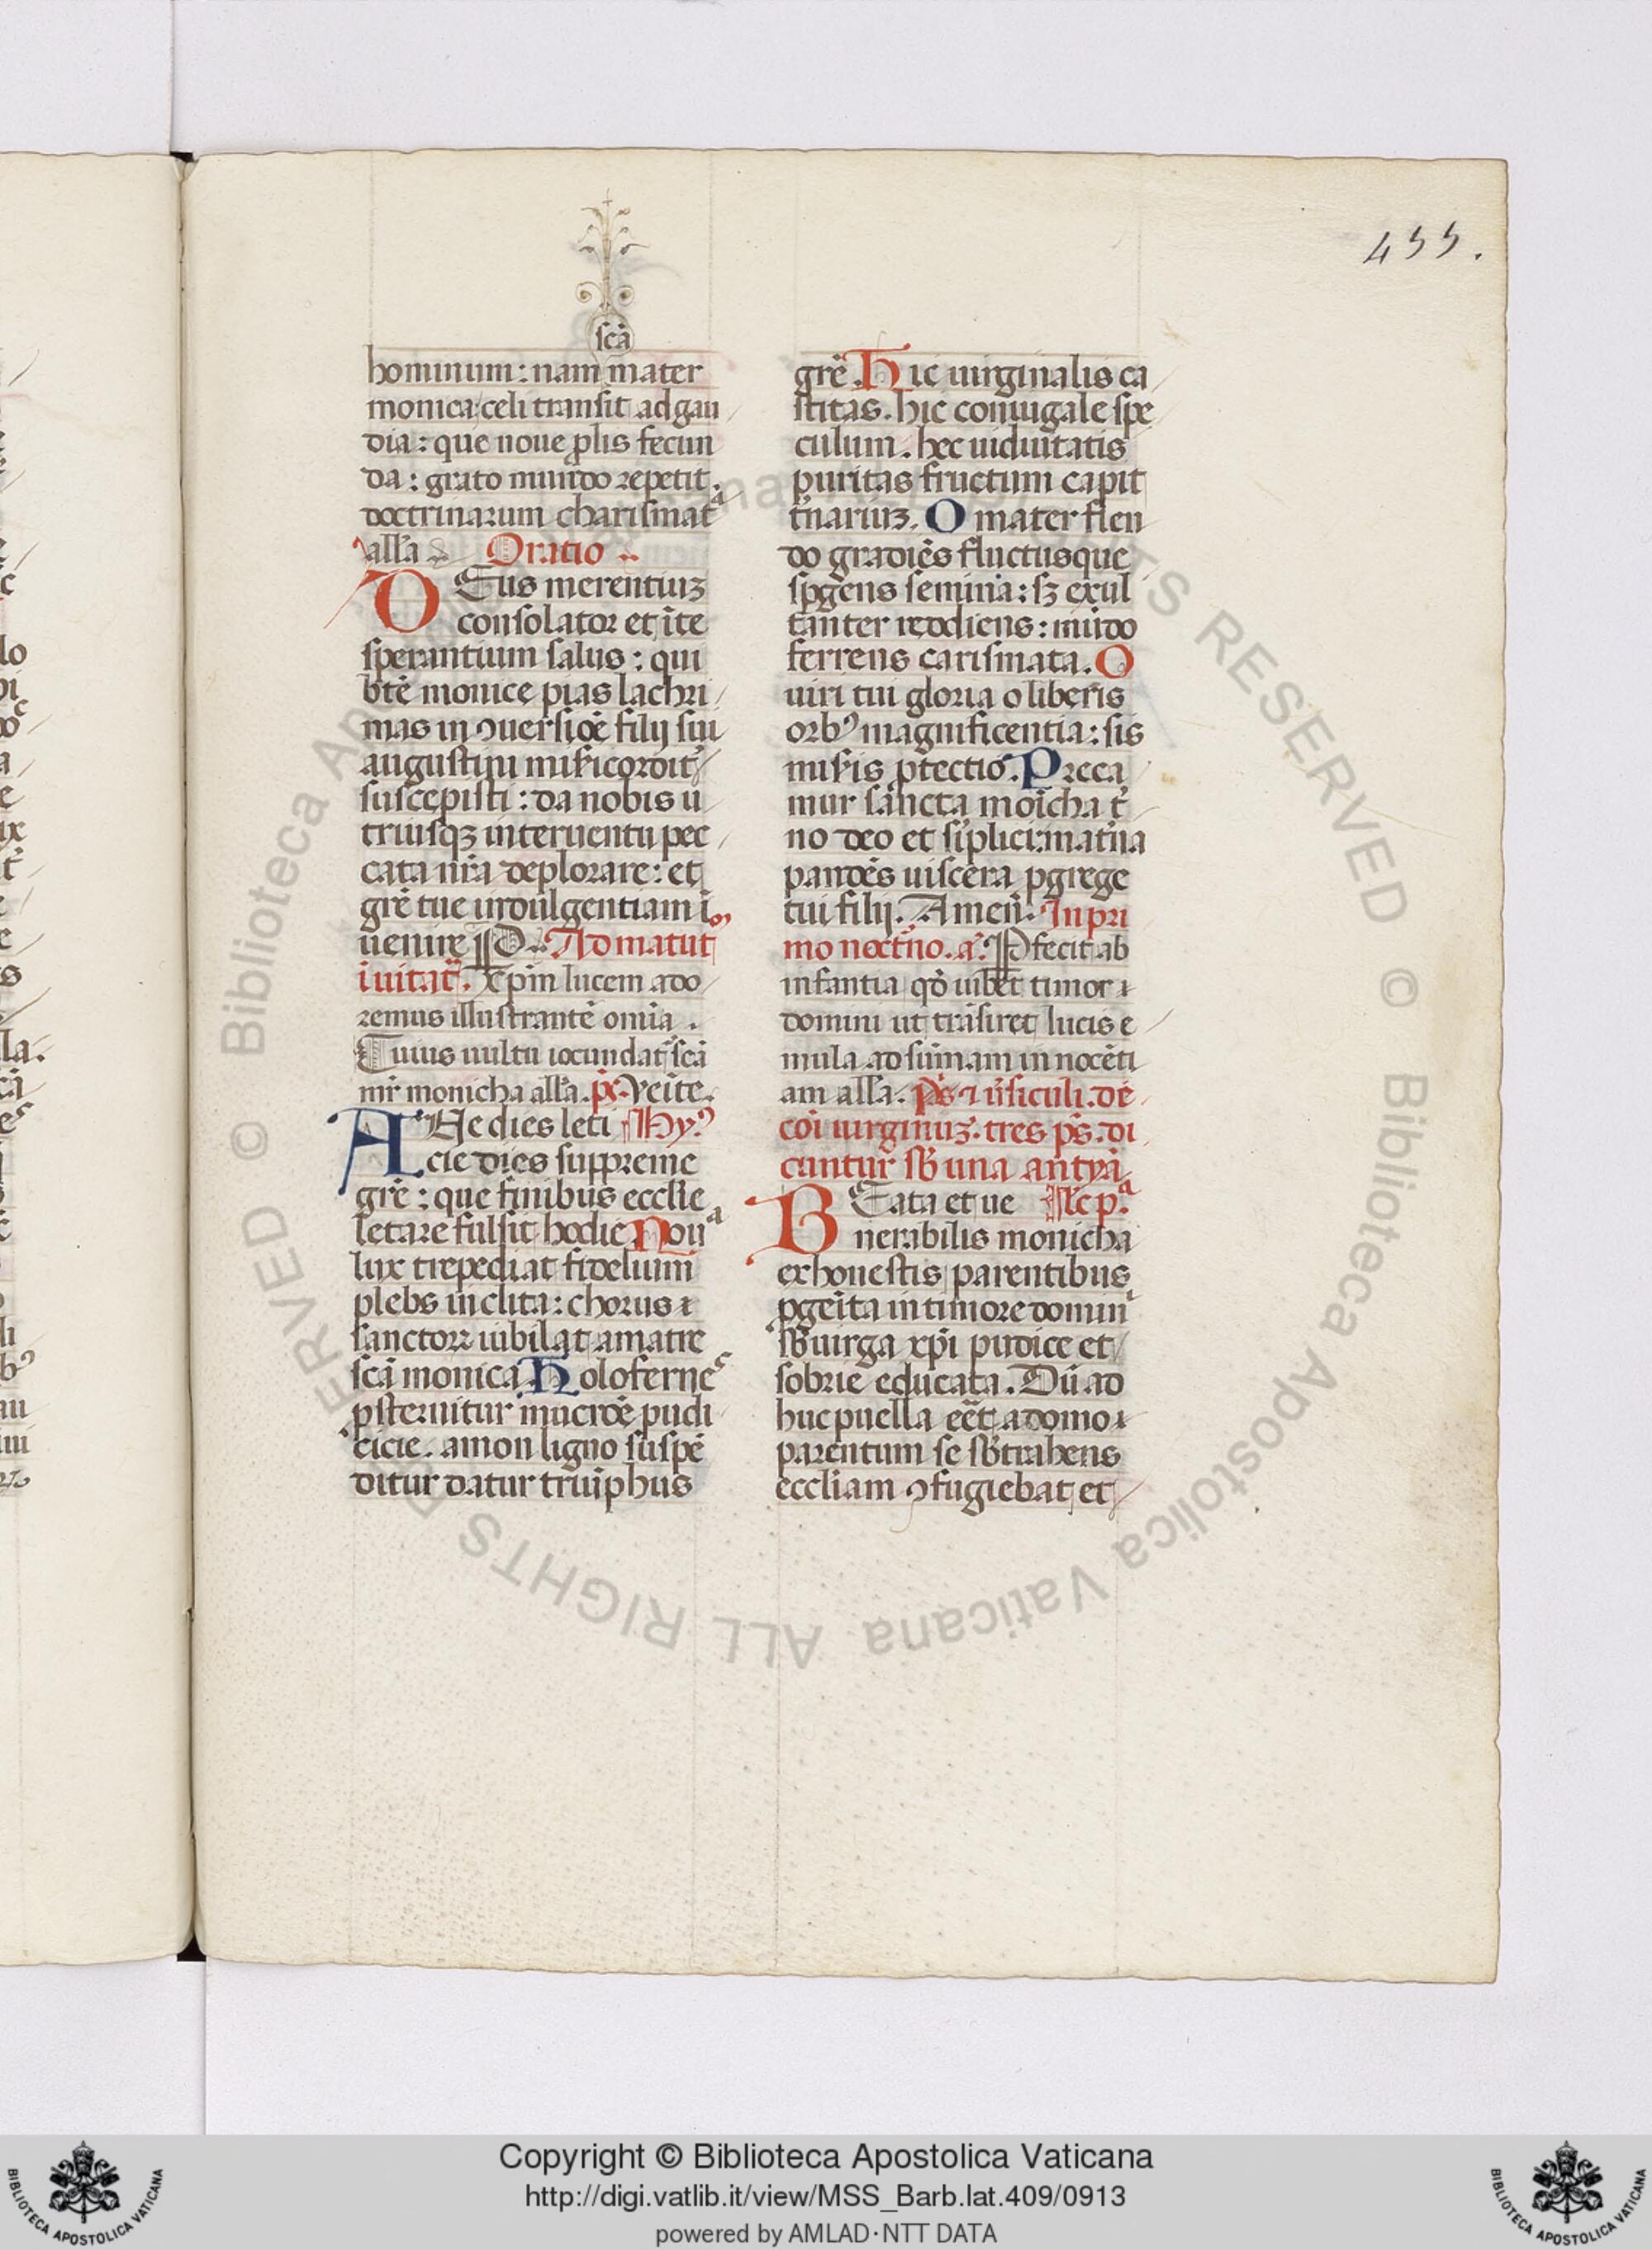 455.
scā
hominum: nam mater
monica celi transit ad gau
dia: que noue plis fecun
da: grato mundo repetit
doctrinarum charismatᵃ
alla Oratio
DEus merentiuꝫ
consolator et ī te
sperantium salus: qui
btē monice pias lachri
mas in ꝯuersiōe filij sui
augustini misicordit
suscepisti: da nobis u
triusqꝫ interuentu pec
cata nrā deplorare: et
grē tue indulgentiam ī
uenire p D Ad matut
īuitat. xpm lucem ado
remus illustrantē omīa.
Cuius uultu iocundat scā
mr̄ monicha alla. ps. Venite.
AHe dies leti Hy.
cie dies suppreme
grē: que finibus ecclie
letare fulsit hodie Nouᵃ
lux trepediat fidelium
plebs inclita: chorus ⁊
sanctoꝝ iubilat a matre
scā monica. Holoferneˢ
psternitur mucrōe pudi
cicie. amon ligno suspē
ditur datur triūphus
grē. Hic uirginalis ca
stitas. hic coniugale spe
culum. hec uiduitatis
puritas fructum capit
tnariuꝫ. O mater flen
do gradiēs fluctusque
spgens semina: sꝫ exul
tanter reddiens: mūdo
ferrens carismata. O
uiri tui gloria o liberis
orbꝰ magnificentia: sis
misis ptectio. Preca
mur sancta mōicha t
no deo et siplici: matna
pandēs uiscera p grege
tui filij. Amen. In pri
mo noctno. a. Pfecit ab
infantia qd uibet timor
domini ut trāsiret lucis e
mula ad sūmam innocēti
am alla. ps ⁊ usiculi. de
cōi uirginuꝫ. tres ps. di
cuntur sb una antyā
BEata et ue lc pᵃ
nerabilis monicha
ex honestis parentibus
pgeīta in timore domin
sb uirga xpi pudice et
sobrie educata. Dū ad
huc puella eēt a domo
parentum se sbtrahens
eccliam ꝯfugiebat et
Copyright © Biblioteca Apostolica Vaticana
http://digi.vatlib.it/view/MSS_Barb.lat.409/0913
powered by AMLAD·NTT DATA
BIBLIOTECA APOSTOLICA VATICANA
BIBLIOTECA APOSTOLICA VATICANA
© Biblioteca Apostolica Vaticana ALL RIGHTS RESERVED © Biblioteca Apostolica Vaticana ALL RIGHTS RESERVED